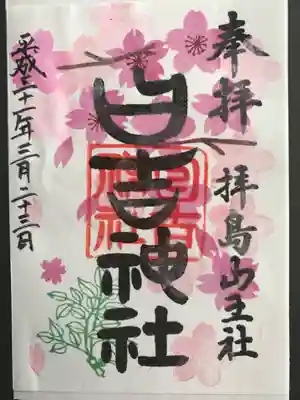 奉拝
拝島山王社
日吉神社
平成三十一年三月二十三日